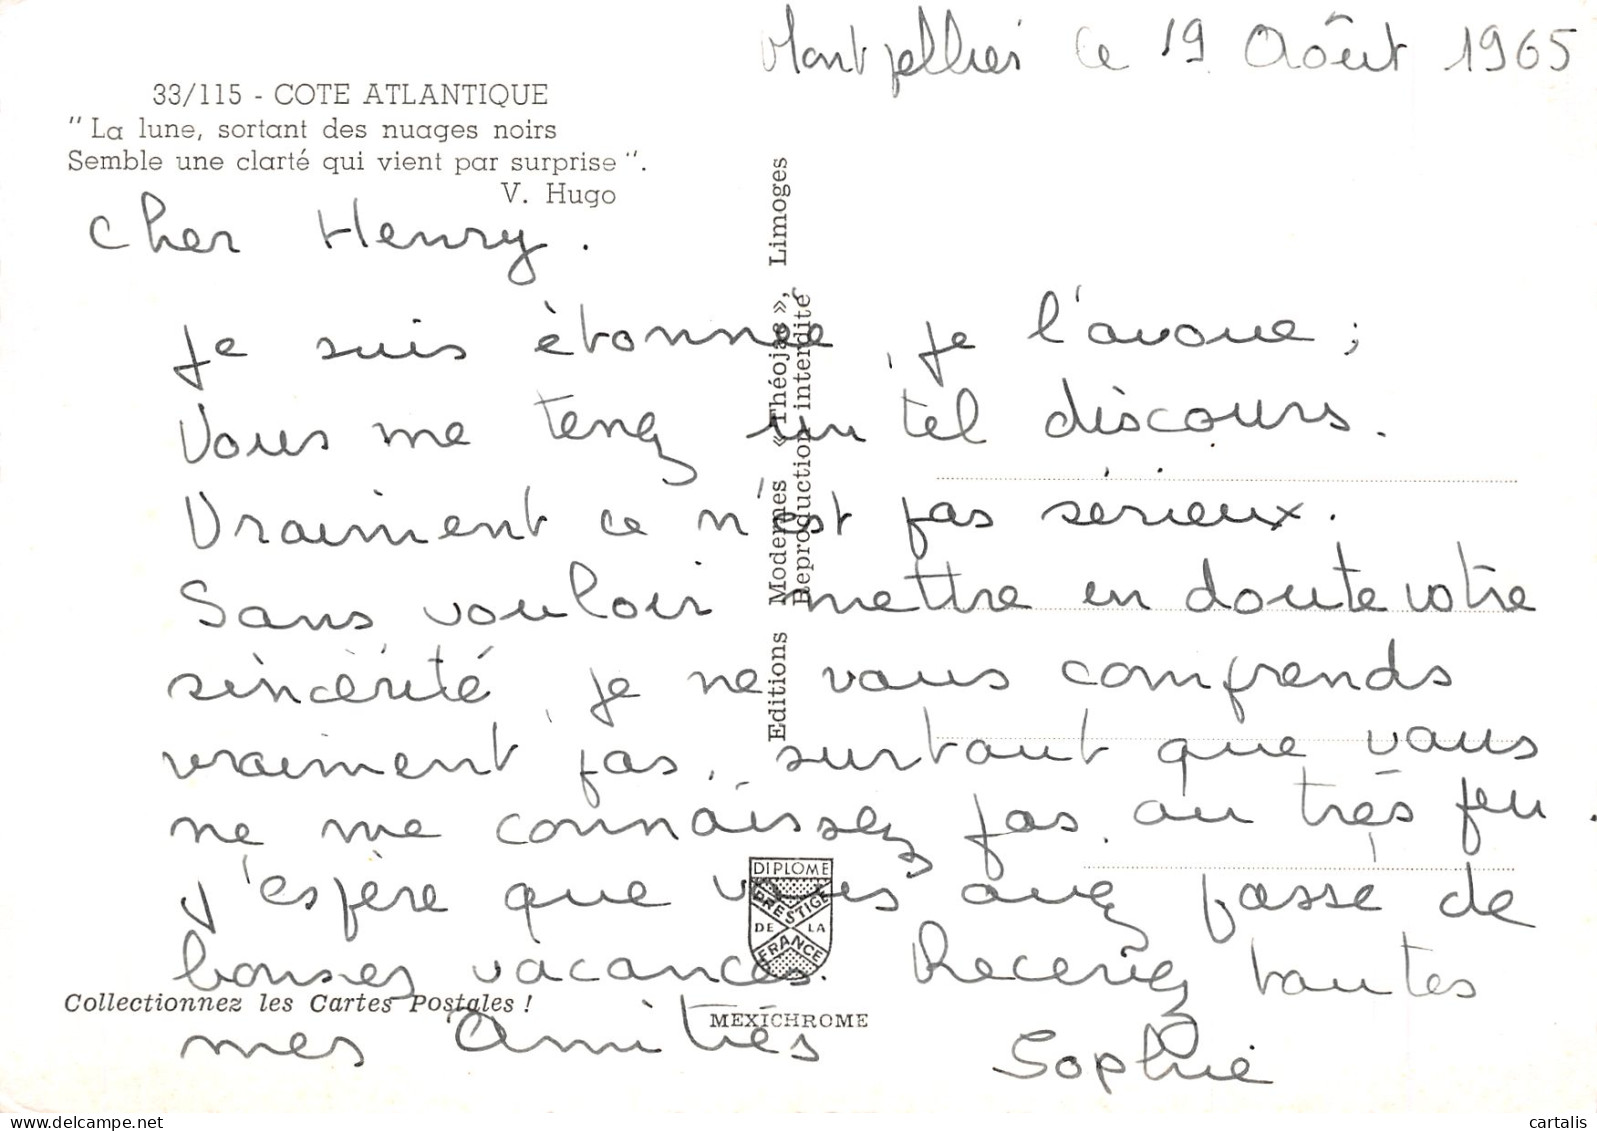 Montpellier ce 19 Août 1965
33/115 - COTE ATLANTIQUE
"La lune, sortant des nuages noirs
Semble une clarté qui vient par surprise".
V. Hugo
Cher Henry.
Je suis étonnée, je l'avoue ;
Vous me tenez un tel discours.
Vraiment ce n'est pas sérieux.
Sans vouloir mettre en doute votre
sincérité, je ne vous comprends
vraiment pas, surtout que vous
ne me connaissez pas, ou très peu.
J'espère que vous avez passé de
bonnes vacances. Recevez toutes
mes Amitiés
Sophie
Editions Modernes «Théojac», Limoges
Reproduction interdite
DIPLOME
PRESTIGE
DE LA
FRANCE
Collectionnez les Cartes Postales !
MEXICHROME
cartalis